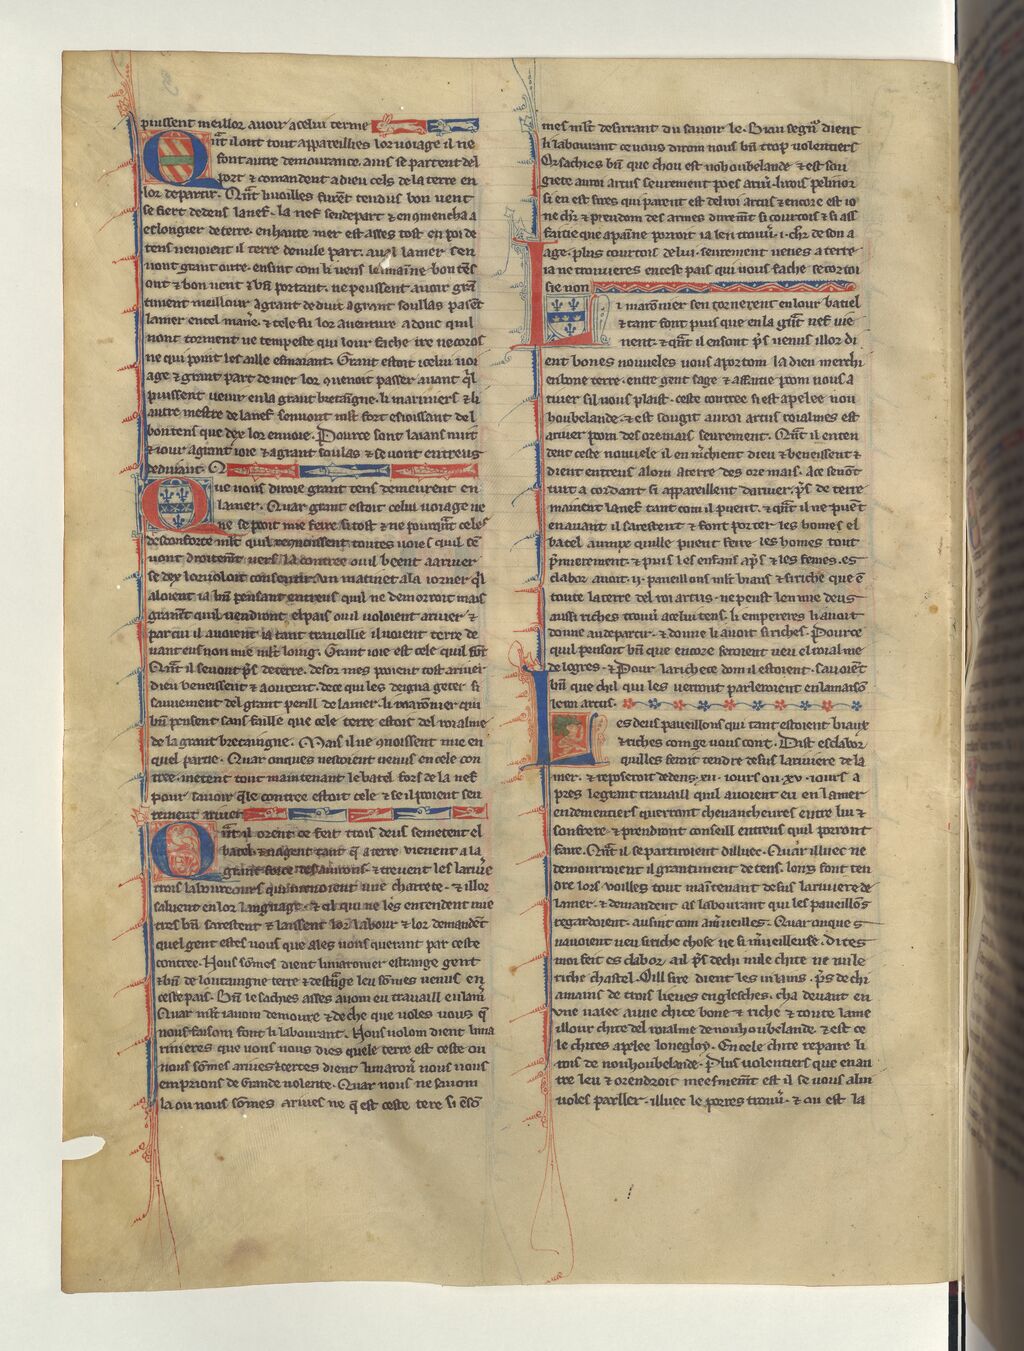 puissent meillor auoir a celui terme
Qn̄t il ont tout appareillies lor uoiage il ne
font autre demourance. ains se partent del
port ⁊ comandent a dieu cels de la terre en
lor departir. Qn̄t li uoilles furēt tendus bon uent
se fiert dedens la nef. la nef se depart ⁊ en gmencha a
eslongier de terre. en haute mer est asses tost en poi de
tens ne uoient il terre de nule part. aual la mer sen
uont grant oirre. ensint com li uens le maine bon tēs
ont ⁊ bon uent ⁊ bn̄ portant. ne peussent auoir grā
timent meillour a grant deduit a grant soullas pasēt
la mer en tel manē. ⁊ tele fu lor auenture adonc quil
nont torment ne tempeste qui lour fache ire ne coros
ne qui point les aille esmaiant. Grant estoit icelui uoi
age ⁊ grant part de mer lor quenoit passer auant q̄l
puissent uenir en la grant bretaingne. li mariniers ⁊ li
autre mestre de la nef sen uont ml̄t fort esioissant del
bon tens que dex lor enuoie. Pour ce sont laians nuit
⁊ iour a grant ioie ⁊ a grant soulas ⁊ se uont entreus
deduiant. Q
Que uous diroie grant tens demeurent en
la mer. Quar grant estoit celui uoiage ne
ne se pooit mie feire si tost ⁊ ne pourqn̄t celes
desconforte ml̄t quil connoissent toutes uoies quil sē
uont droitemēt uers la contree ou il beent a ariuer
se dex lor uoloit consentir. A un matinet a la iorner q̄l
aloient ia bn̄ pensant entreus quil ne demorroit mais
granēt quil uendront el pais ou il uoloient ariuer ⁊
par cui il auoient ia tant trauellie il uoient terre de
uant eus non mie ml̄t loing. Grant ioie est cele quil fōt
Qn̄t il se uont p̄s de terre. des or mes poient tost ariuer
dieu beneissent ⁊ aourent. de ce qui les deigna geter si
sauuement del grant perill de la mer. li marōnier qui
bn̄ pensent sans faille que cele terre estoit del roialme
de la grant bretaingne. Mais il ne qnoissent mie en
quel partie. Quar onques nestoient uenus en cele con
tree. metent tout maintenant le batel fors de la nef
pour sauoir q̄le contree estoit cele ⁊ se il poient seu
rement ariuer
Qn̄t il orent ce feit trois deus se metent el
batel ⁊ nagent tant q̄ a terre uienent a la
grant force des auirons. ⁊ treuent les la riuīe
trois laboureours qui menoient une charrete. ⁊ il lor
saluent en lor language. ⁊ cil qui ne les entendent mie
tres bn̄ sarestent ⁊ laissent lor labour ⁊ lor demandēt
quel gent estes uous que ales uous querant par ceste
contree. Nous sōmes dient li maronier estrange gent
⁊ bn̄ de lointaingne terre ⁊ destāge leu sōmes uenus en
cest pais. Bn̄ le saches asses auom eu trauaill en la m̄
Quar ml̄t i auom demoure ⁊ de che que uoles uous q̄
nous faisom font li labourant. Nous uolom dient li ma
rinieres que uous nous dies quele terre est ceste ou
nous sōmes ariues ⁊ certes dient li maron̄ nous uous
em prions de Grande uolente. Quar nous ne sauom
la ou nous sōmes ariues ne q̄ est ceste tere si ē sō
mes ml̄t desirrant du sauoir le. Biau segn̄ dient
li labourant ce uous dirom nous bn̄ trop uolentiers
Or sachies bn̄ que chou est nohoubelande ⁊ est sou
giete au roi artus seurement poes ariū. li rois pelinor
si en est sires qui parent est del roi artus ⁊ encore est io
ne ch̄r ⁊ preudom des armes durem̄t si courtois ⁊ si ass
faitie que apaine porroit ia len trouū. i. ch̄r de son a
age. plus courtois de lui. seurement uenes a terre
ia ne trouueres en cest pais qui uous fache se cortoi
sie non
Li marōnier sen tornerent en lour batel
⁊ tant font puis que en la gn̄t nef uie
nent. ⁊ qn̄t il en sont p̄s uenus il lor di
ent bones nouueles uous aportom la dieu merchi
en bone terre. entre gent sage ⁊ affaitie poom nous a
riuer sil uous plaist. ceste contree si est apelee nou
houbelande. ⁊ est sougit au roi artus roialmes est
ariuer poom des ore mais seurement. Qn̄t il enten
dent ceste nouuele il en m̄chient dieu ⁊ beneissent ⁊
dient entreus alom a terre des ore mais. A ce seuōt
tuit acordant si appareillent dariuer. p̄s de terre
mainent la nef tant com il puent. ⁊ qn̄t il ne puēt
en auant il sarestent ⁊ font porter les homes el
batel au mix quille puent feire les homes tout
p̄mierement. ⁊ puis les enfans ap̄s ⁊ les femes. es
clabor auoit .ij. paueillons ml̄t biaus ⁊ si riche que ē
toute la terre del roi artus. ne peust len une deus
aussi riches trouū a celui tens. li empereres li auoit
donne au departir. ⁊ donne li auoit si riches. Pour ce
quil pensoit bn̄ que encore seroient ueu el roialme
de logres. ⁊ Pour la richece dom il estoient. sauoiēt
bn̄ que chil qui les uerront parleroient en la maisō
le roi artus.
Les deus paueillons qui tant estoient biaux
⁊ riches com ge uous cont. Dist esclabor
quil les feroit tendre desus la riuiere de la
mer. ⁊ reposeroit dedens. xij. iours ou .xv. iours a
pres le grant trauaill quil auoient eu en la mer
endementiers querront cheuaucheures entre lui ⁊
son frere. ⁊ prendront conseill entreus quil porront
faire. Qn̄t il se partiroient dilluec. Quar illuec ne
demourroient il grantiment de tens. lors font ten
dre lors uoilles tout maintenant desus la riuiere de
la mer. ⁊ demandent as labourant qui les paueillōs
regardoient. ausint com am̄ueilles. Quar onques
nauoient ueu si riche chose ne si m̄ueilleuse. dites
moi feit esclabor. a il p̄s dechi nule chite ne nule
riche chastel. Oill sire dient les uilains. p̄s de chi
a mains de trois lieues englesches. cha deuant en
une ualee a une chite bone ⁊ riche ⁊ toute la me
illour chite del roialme de nouhoubelande. ⁊ est ce
le chites apelee lonegloy. En cele chite repaire li
rois de nouhoubelande. Plus uolentiers que en au
tre leu ⁊ orendroit meesmem̄t est il se uous a lui
uoles parller. illuec le porres trouū. ⁊ ou est la